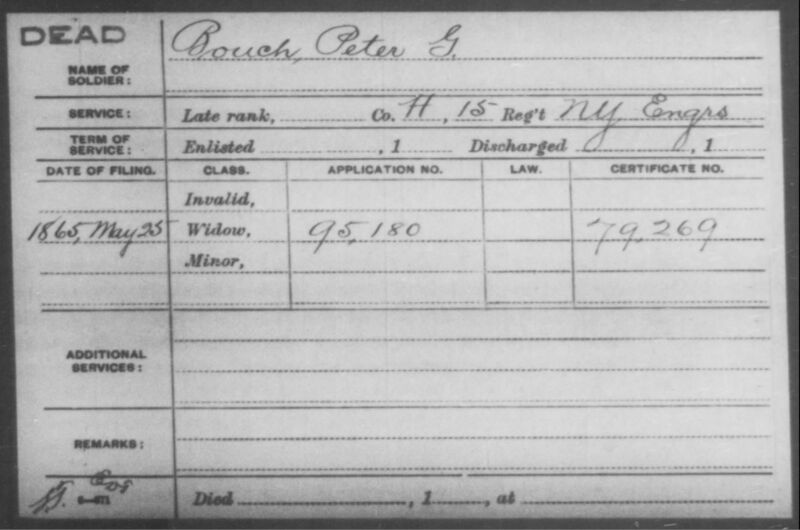 DEAD
Bouch, Peter G.
NAME OF SOLDIER:
SERVICE: Late rank, Co. H, 15 Reg't NY Engrs
TERM OF SERVICE: Enlisted , 1 Discharged , 1
DATE OF FILING. CLASS. APPLICATION NO. LAW. CERTIFICATE NO.
Invalid,
1865, May 25 Widow, 95,180 79,269
Minor,
ADDITIONAL SERVICES:
REMARKS:
Died , 1 , at